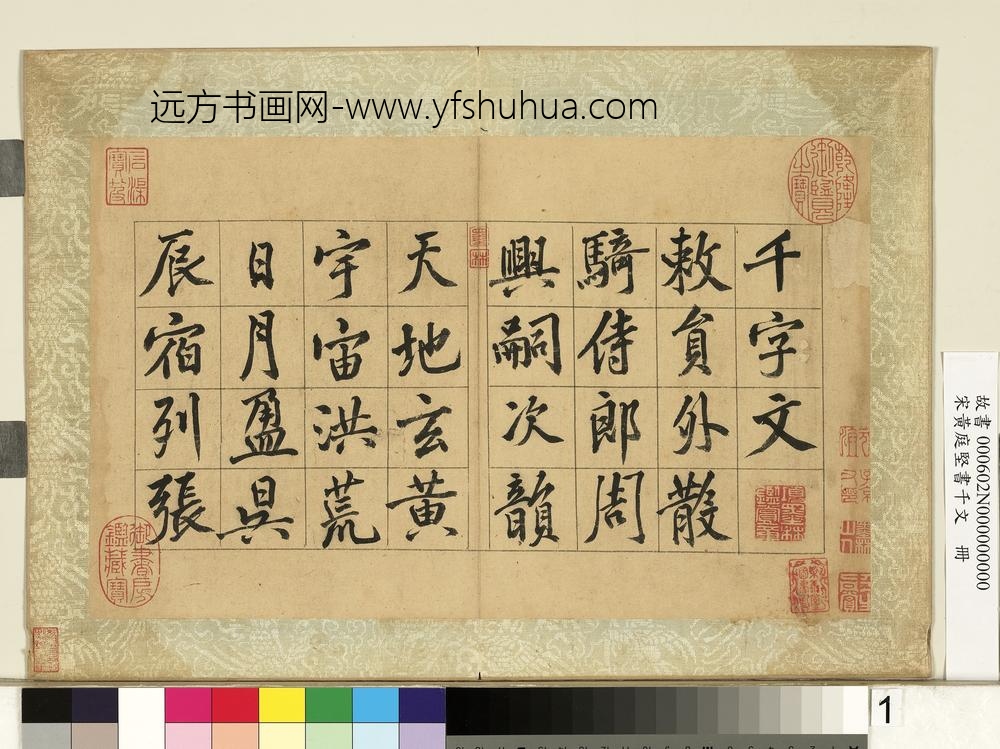 远方书画网-www.yfshuhua.com
乾隆御覽之寶
千字文
敕員外散
騎侍郎周
興嗣次韻
天地玄黃
宇宙洪荒
日月盈昃
辰宿列張
御書房鑑藏寶
故書 000602N000000000
宋黃庭堅書千文 冊
1